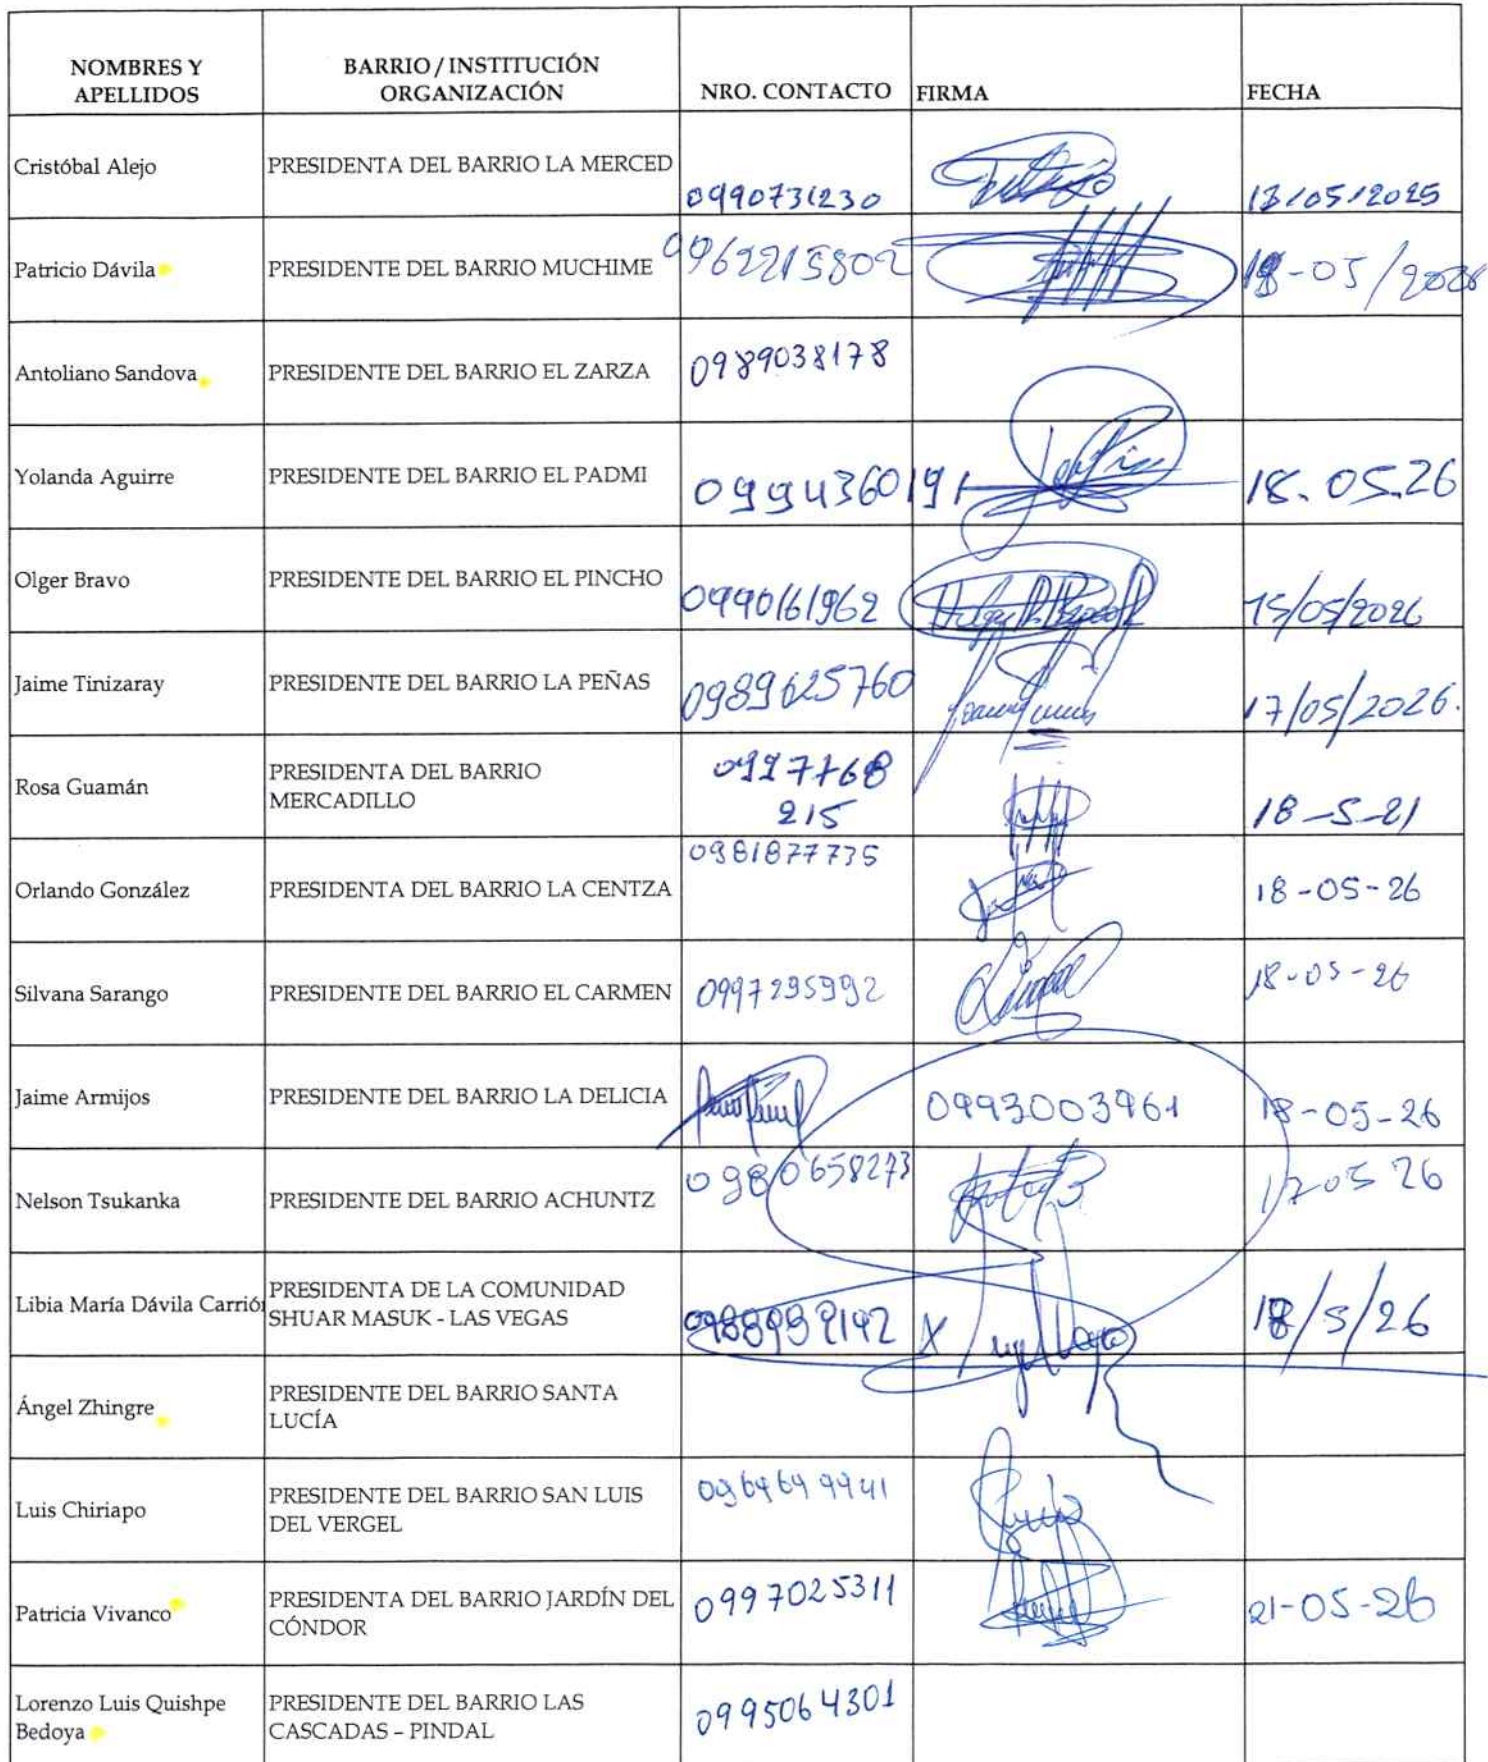 NOMBRES Y APELLIDOS BARRIO / INSTITUCIÓN ORGANIZACIÓN NRO. CONTACTO FIRMA FECHA
Cristóbal Alejo PRESIDENTA DEL BARRIO LA MERCED 0990731230 13/05/2025
Patricio Dávila PRESIDENTE DEL BARRIO MUCHIME 0962215802 18-05/2026
Antoliano Sandova PRESIDENTE DEL BARRIO EL ZARZA 0989038178
Yolanda Aguirre PRESIDENTE DEL BARRIO EL PADMI 0994360191 18.05.26
Olger Bravo PRESIDENTE DEL BARRIO EL PINCHO 0990161962 15/05/2026
Jaime Tinizaray PRESIDENTE DEL BARRIO LA PEÑAS 0989625760 17/05/2026.
Rosa Guamán PRESIDENTA DEL BARRIO
MERCADILLO 215 18-5-21
Orlando González PRESIDENTA DEL BARRIO LA CENTZA 0981877735 18-05-26
Silvana Sarango PRESIDENTE DEL BARRIO EL CARMEN 0997295992 18-05-26
Jaime Armijos PRESIDENTE DEL BARRIO LA DELICIA 0993003961 18-05-26
Nelson Tsukanka PRESIDENTE DEL BARRIO ACHUNTZ 0980658273 17-05 26
Libia María Dávila Carrió PRESIDENTA DE LA COMUNIDAD
SHUAR MASUK - LAS VEGAS 18/5/26
Ángel Zhingre PRESIDENTE DEL BARRIO SANTA
LUCÍA
Luis Chiriapo PRESIDENTE DEL BARRIO SAN LUIS
DEL VERGEL 0969699941
Patricia Vivanco PRESIDENTA DEL BARRIO JARDÍN DEL
CÓNDOR 0997025311 21-05-26
Lorenzo Luis Quishpe
Bedoya PRESIDENTE DEL BARRIO LAS
CASCADAS – PINDAL 0995064301